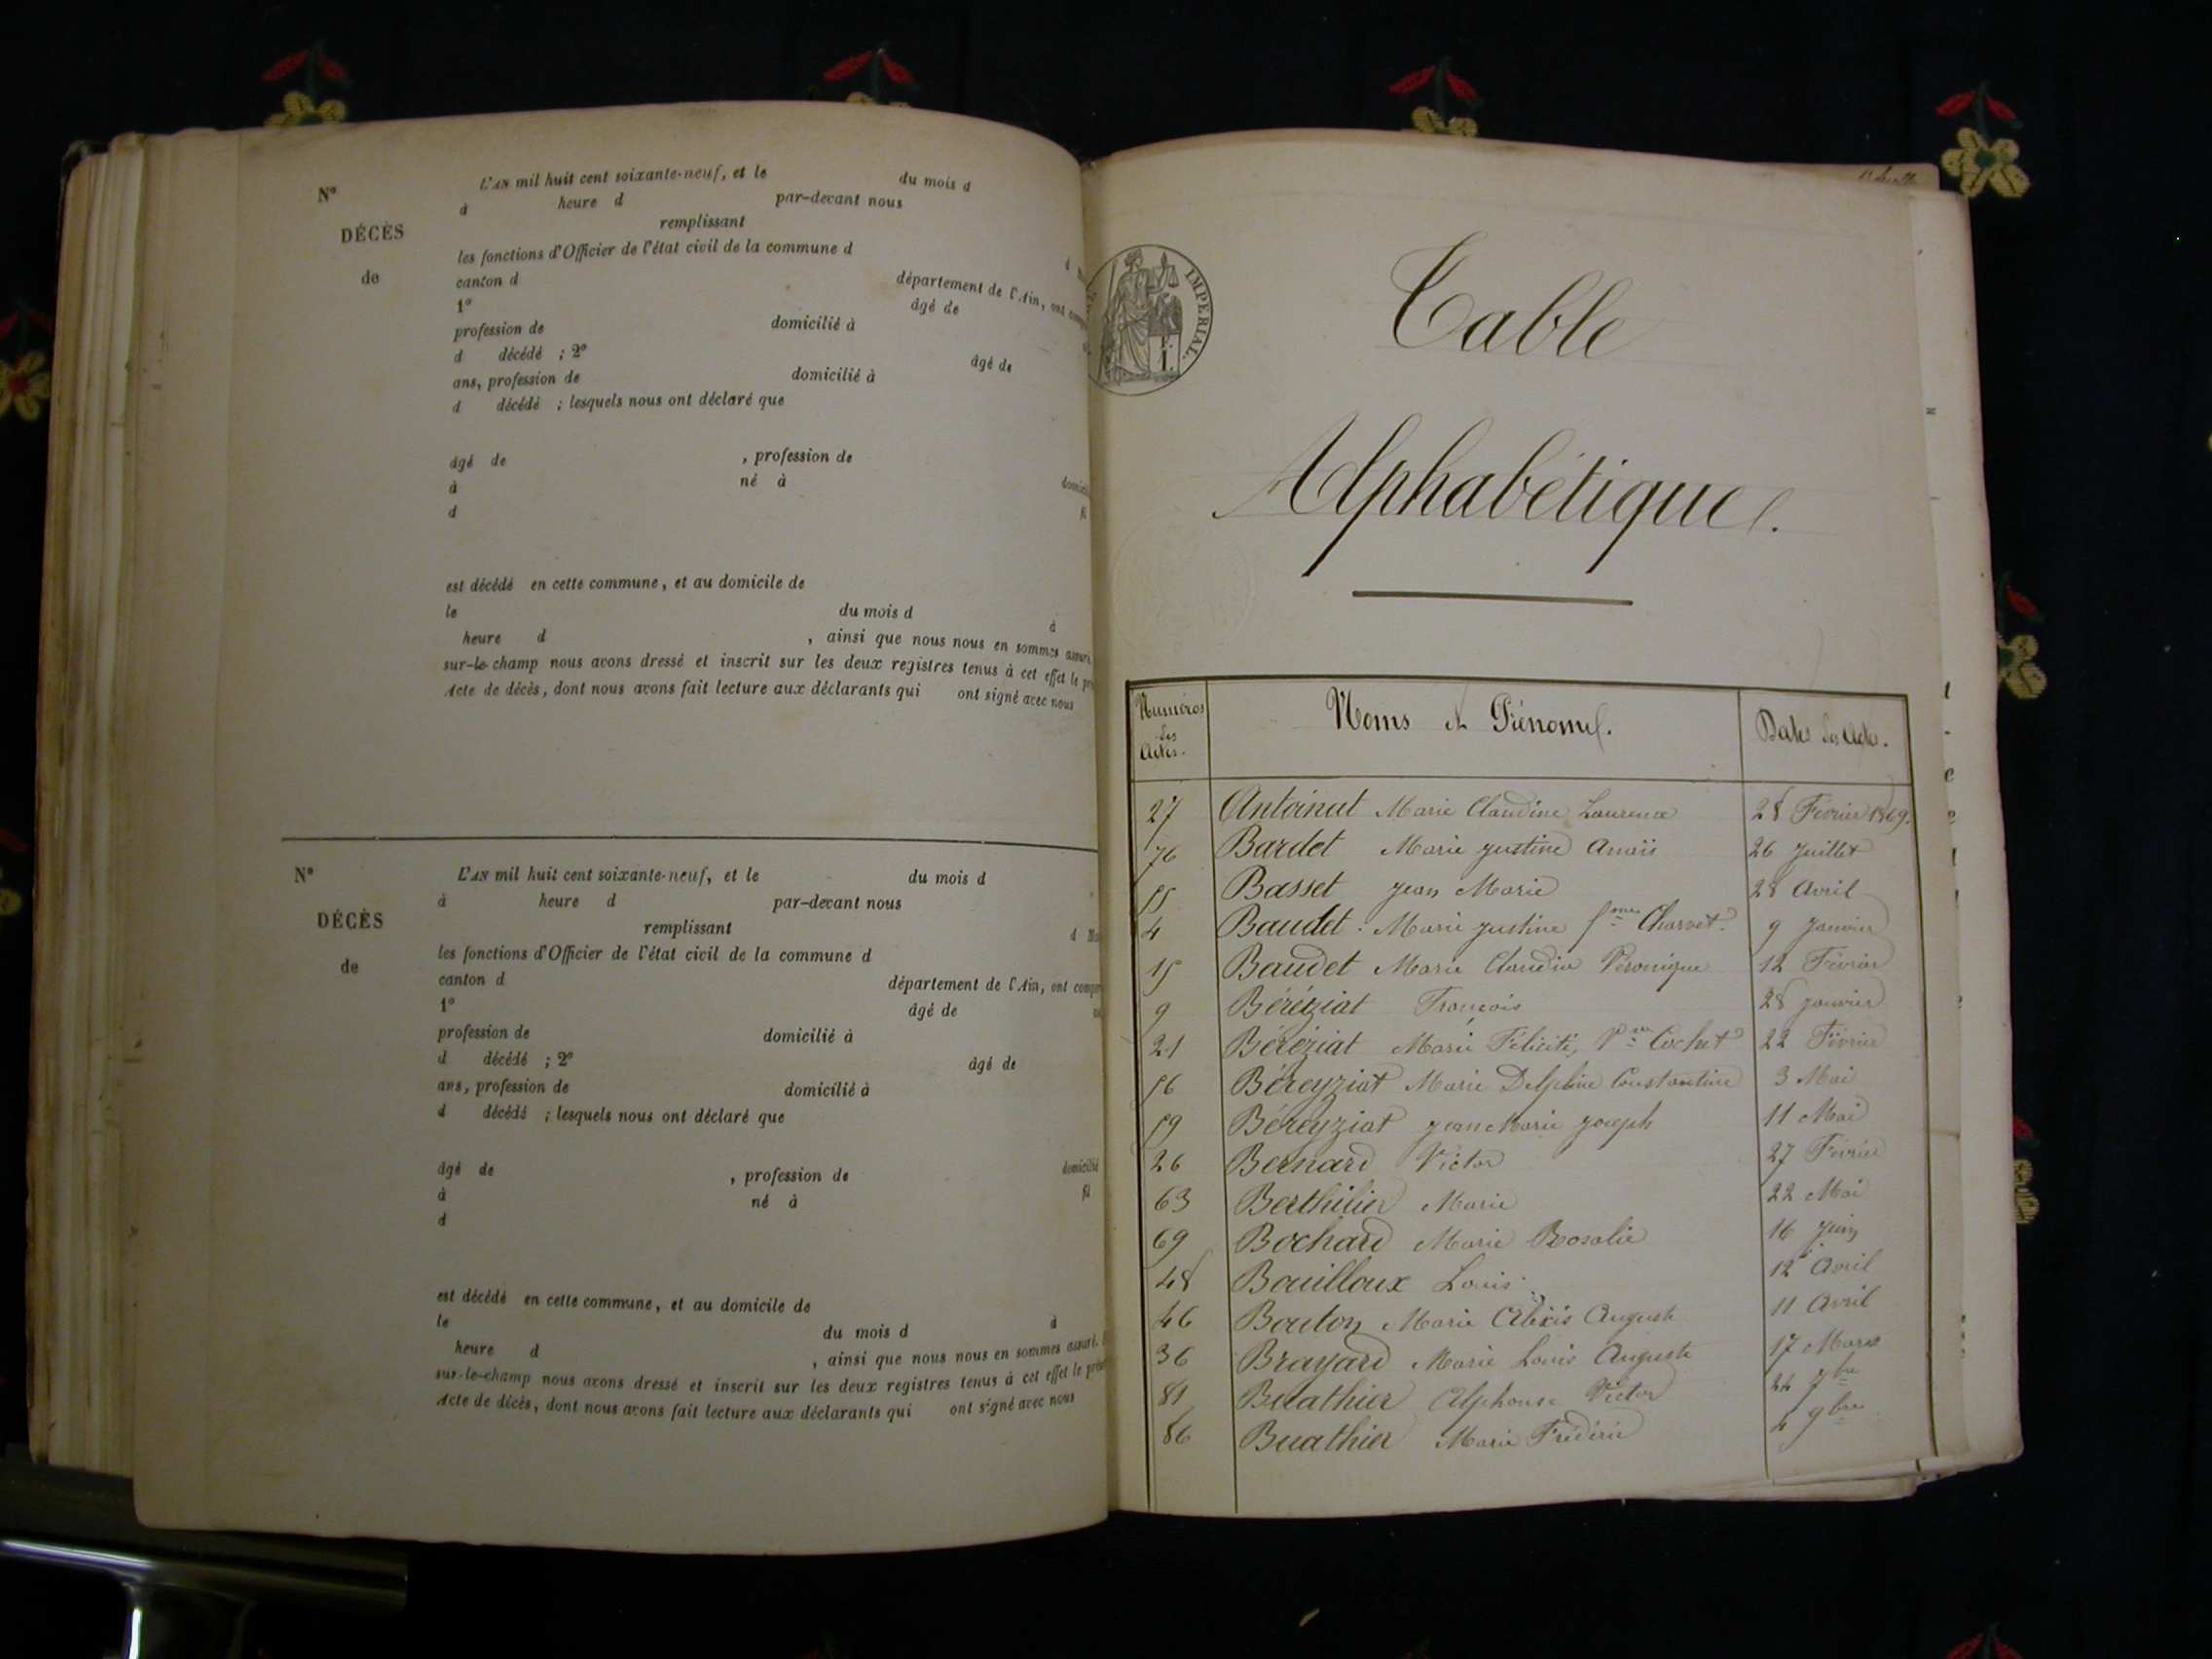 N°
DÉCÈS
de
L'AN mil huit cent soixante-neuf, et le du mois d
à heure d par-devant nous
remplissant
les fonctions d'Officier de l'état civil de la commune d
canton d département de l'Ain, ont
1° âgé de
profession de domicilié à
d décédé ; 2° âgé de
ans, profession de domicilié à
d décédé ; lesquels nous ont déclaré que
âgé de , profession de
à né à
d
est décédé en cette commune, et au domicile de
le du mois d à
heure d , ainsi que nous nous en sommes assuré.
sur-le-champ nous avons dressé et inscrit sur les deux registres tenus à cet effet le
Acte de décès, dont nous avons fait lecture aux déclarants qui ont signé avec nous
N°
DÉCÈS
de
L'AN mil huit cent soixante-neuf, et le du mois d
à heure d par-devant nous
remplissant
les fonctions d'Officier de l'état civil de la commune d
canton d département de l'Ain, ont
1° âgé de
profession de domicilié à
d décédé ; 2° âgé de
ans, profession de domicilié à
d décédé ; lesquels nous ont déclaré que
âgé de , profession de domicilié
à né à
d
est décédé en cette commune, et au domicile de
le du mois d à
heure d , ainsi que nous nous en sommes assuré.
sur-le-champ nous avons dressé et inscrit sur les deux registres tenus à cet effet le
Acte de décès, dont nous avons fait lecture aux déclarants qui ont signé avec nous
IMPÉRIAL.
Table
Alphabétique.
Numéros des Actes. Noms et Prénoms. Dates des Actes.
27 Antoinat Marie Claudine Laurence 28 Février 1869.
76 Bardet Marie Justine Anaïs 26 Juillet
55 Basset Jean Marie 28 Avril
4 Baudet Marie Justine fme Charvet 9 Janvier
15 Baudet Marie Claudia Véronique 12 Février
9 Béréziat François 28 Janvier
21 Béréziat Marie Félicité, Vve Cochet 22 Février
56 Béreyziat Marie Delphine Constantine 3 Mai
59 Béreyziat Jean Marie Joseph 11 Mai
26 Bernard Victor 27 Février
63 Berthilier Marie 22 Mai
69 Bochard Marie Rosalie 16 Juin
48 Bouilloux Louis 12 Avril
46 Bouton Marie Alexis Auguste 11 Avril
36 Brayard Marie Louis Auguste 17 Mars
81 Buathier Alphonse Victor 24 7bre
86 Buathier Marie Frédéric 4 9bre